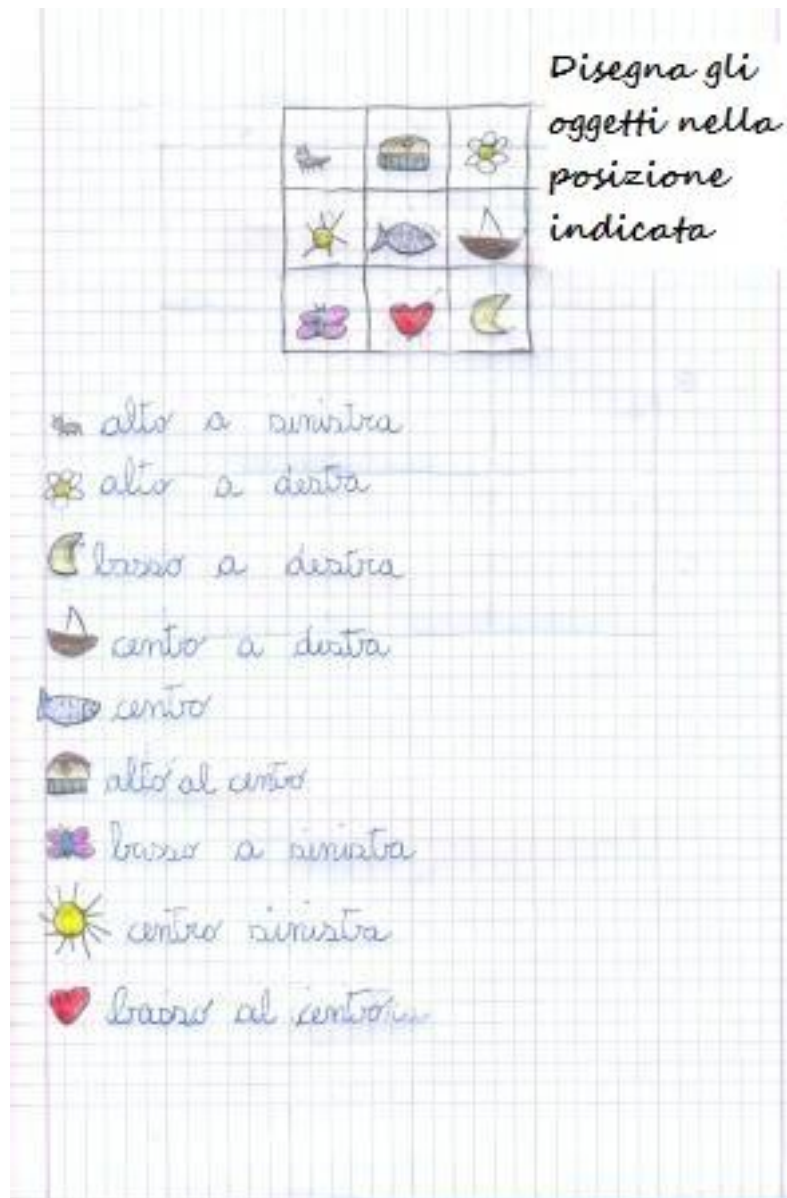 Disegna gli
oggetti nella
posizione
indicata
alto a sinistra
alto a destra
basso a destra
centro a destra
centro
alto al centro
basso a sinistra
centro sinistra
basso al centro